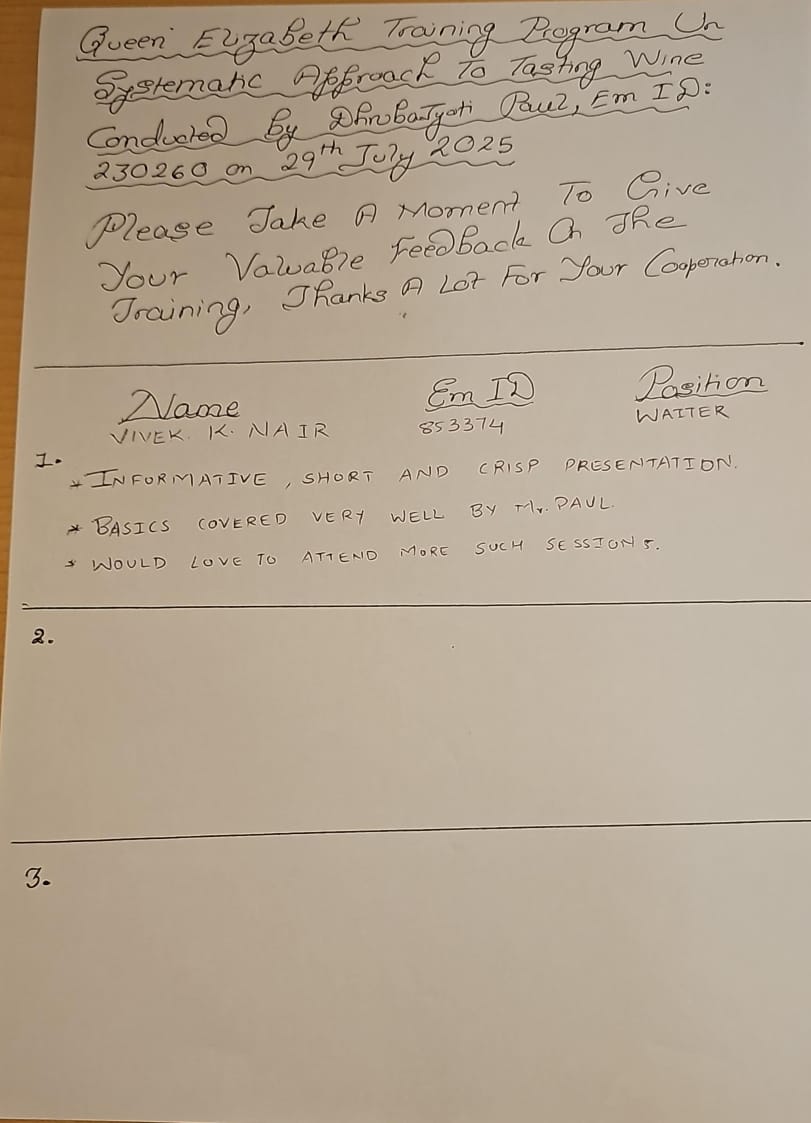 Queen Elizabeth Training Program On
Systematic Approach To Tasting Wine
Conducted By Dhrubajyoti Paul, Em ID:
230260 on 29th July 2025
Please Take A Moment To Give
Your Valuable Feedback On The
Training, Thanks A Lot For Your Cooperation.
Name Em ID Position
VIVEK. K. NAIR 853374 WAITER
1.
* INFORMATIVE, SHORT AND CRISP PRESENTATION.
* BASICS COVERED VERY WELL BY Mr. PAUL.
* WOULD LOVE TO ATTEND MORE SUCH SESSIONS.
2.
3.